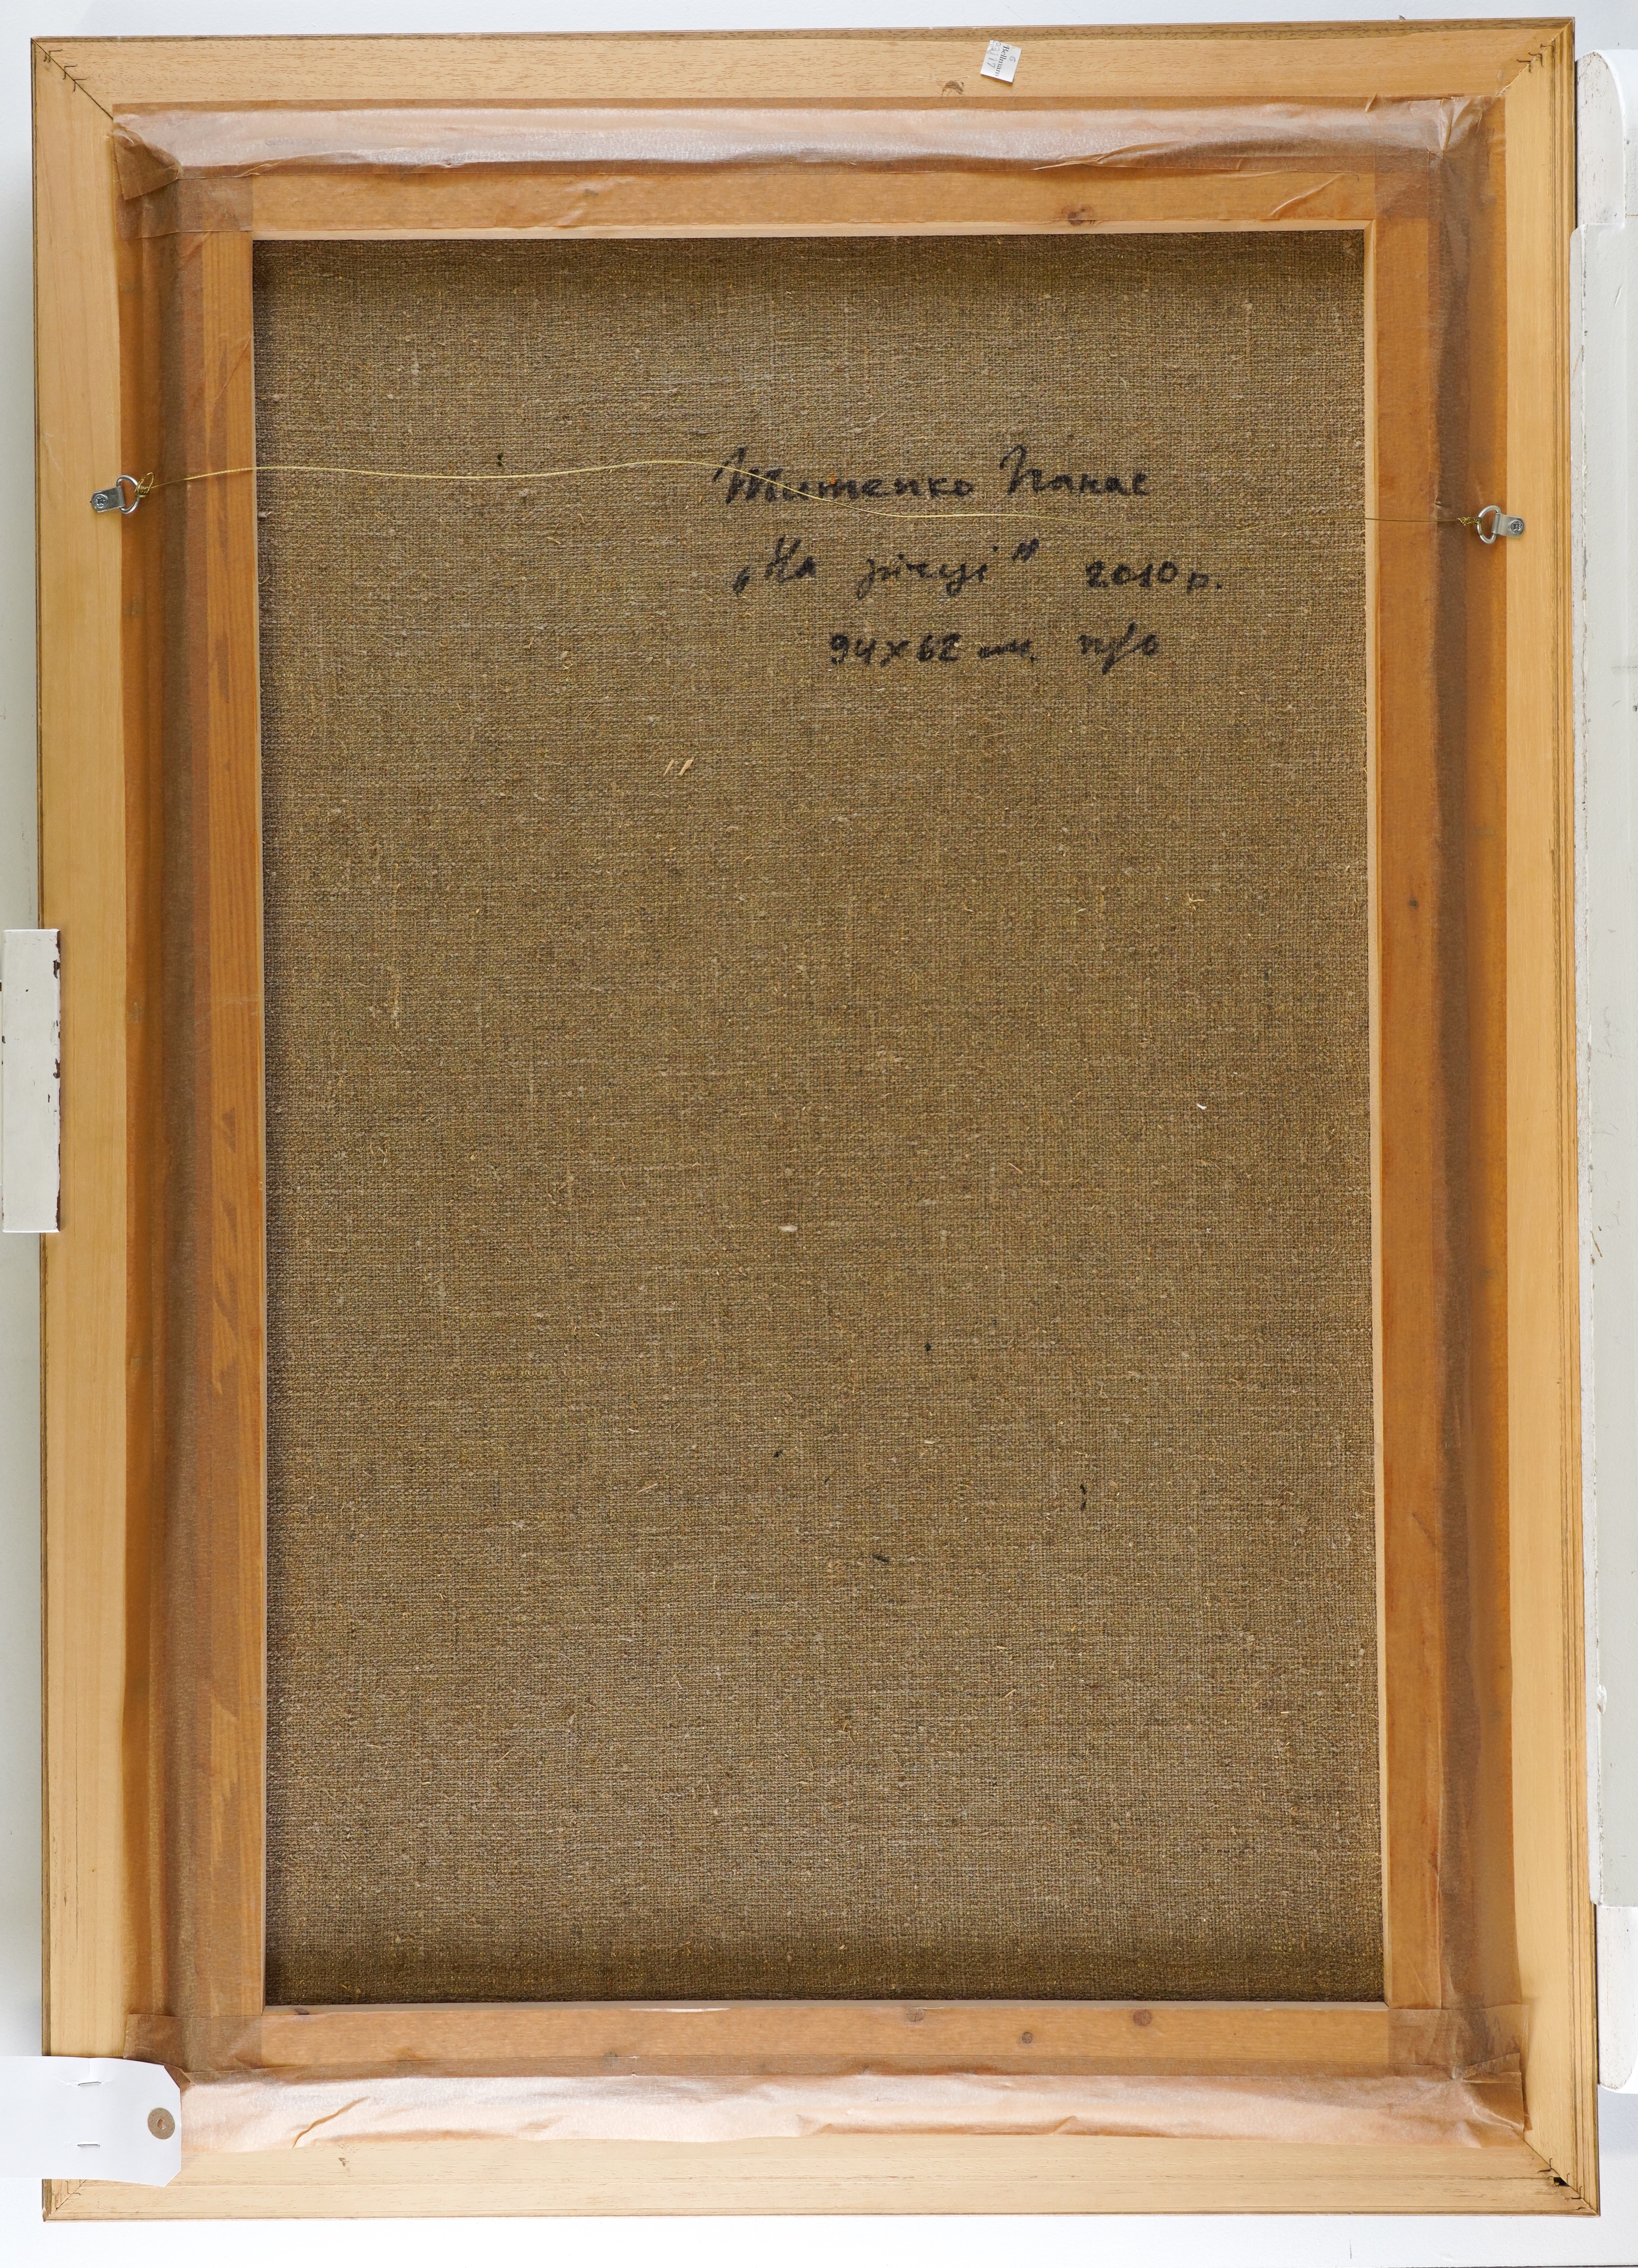 Титенко Панас
„На річці" 2010 р.
94х62 см. п/о